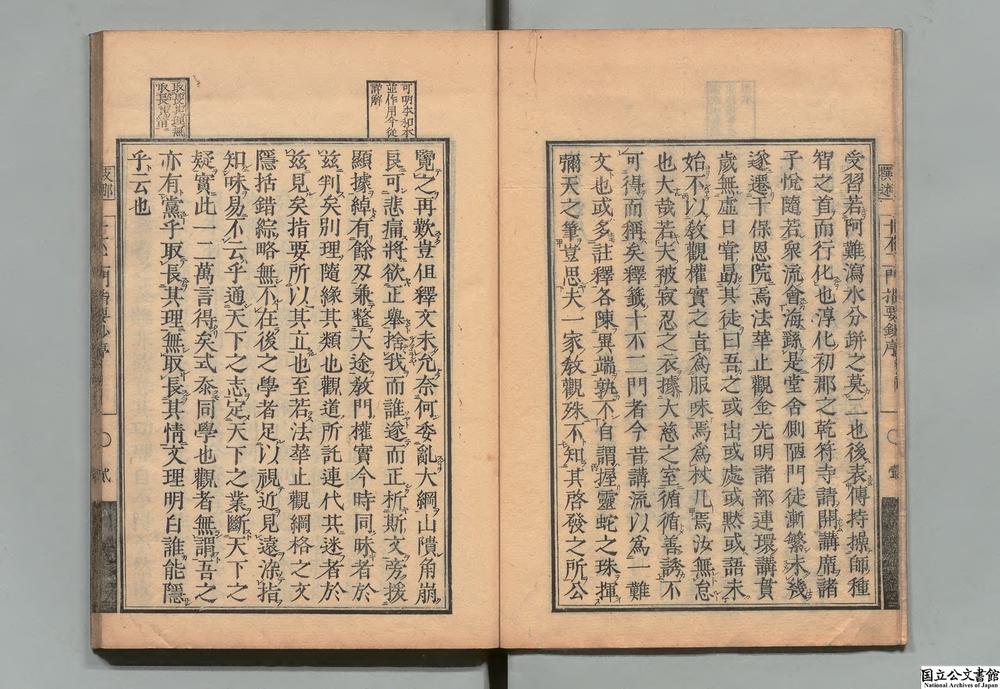 受習若阿難瀉水分缾之莫二也後表傳持操師種
智之首而行化也淳化初郡之乾符寺請開講席諸
子悅隨若衆流會海繇是堂舍側陋門徒漸繁未幾
遂遷于保恩院焉法華止觀金光明諸部連環講貫
歲無虛日甞勗其徒曰吾之或出或處或默或語未
始不以教觀權實之旨爲服味焉爲杖几焉汝無怠
也大哉若夫被寂忍之衣據大慈之室循循善誘不
可得而稱矣釋籤十不二門者今昔講流以爲一難
文也或多註釋各陳異端孰不自謂握靈蛇之珠揮
彌天之筆豈思夫一家教觀殊不知其啓發之所公
可明本如本
並作用今從
詳解
覽之再歎豈但釋文未允奈何委亂大綱山隤角崩
良可悲痛將欲正舉捨我而誰遂而正析斯文旁援
顯據綽有餘刃兼整大途教門權實今時同昧者於
茲判矣別理隨緣其類也觀道所託連代共迷者於
茲見矣指要所以其立也至若法華止觀綱格之文
隱括錯綜略無不在後之學者足以視近見遠染指
知味易不云乎通天下之志定天下之業斷天下之
疑實此一二萬言得矣式忝同學也觀者無謂吾之
亦有黨乎取長其理無取長其情文理明白誰能隱
乎云也
取長其理無
國立公文書館
National Archives of Japan